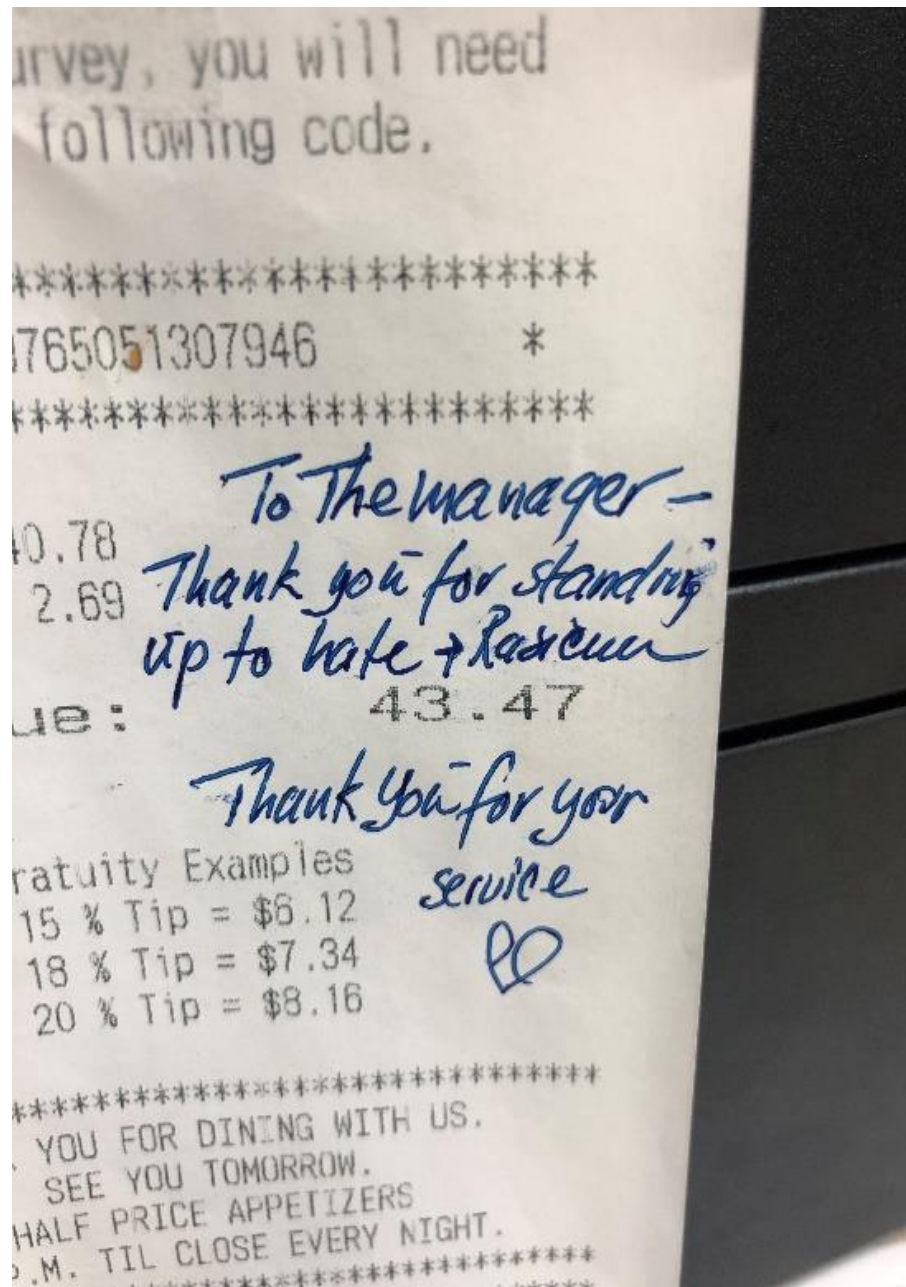 urvey, you will need
following code.
*******************************
765051307946 *
*******************************
To The manager -
40.78
Thank you for standing
2.69
up to hate + Racism
ue: 43.47
Thank you for your
service
ratuity Examples
15 % Tip = $6.12
18 % Tip = $7.34
20 % Tip = $8.16
*******************************
YOU FOR DINING WITH US.
SEE YOU TOMORROW.
HALF PRICE APPETIZERS
.M. TIL CLOSE EVERY NIGHT.
*******************************